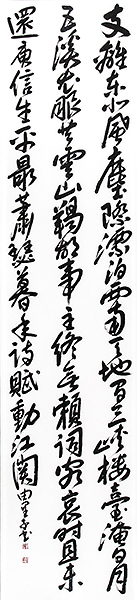 支離東北風塵際漂泊西南天地間三峽樓臺淹日月
五溪衣服共雲山羯胡事主終無賴詞客哀時且未
還庾信生平最蕭瑟暮年詩賦動江關